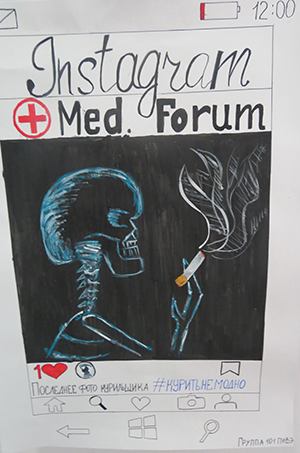 12:00
Instagram
Med. Forum
1
Последнее фото курильщика #КУРИТЬНЕМОДНО
Группа 101 ПНВЭ